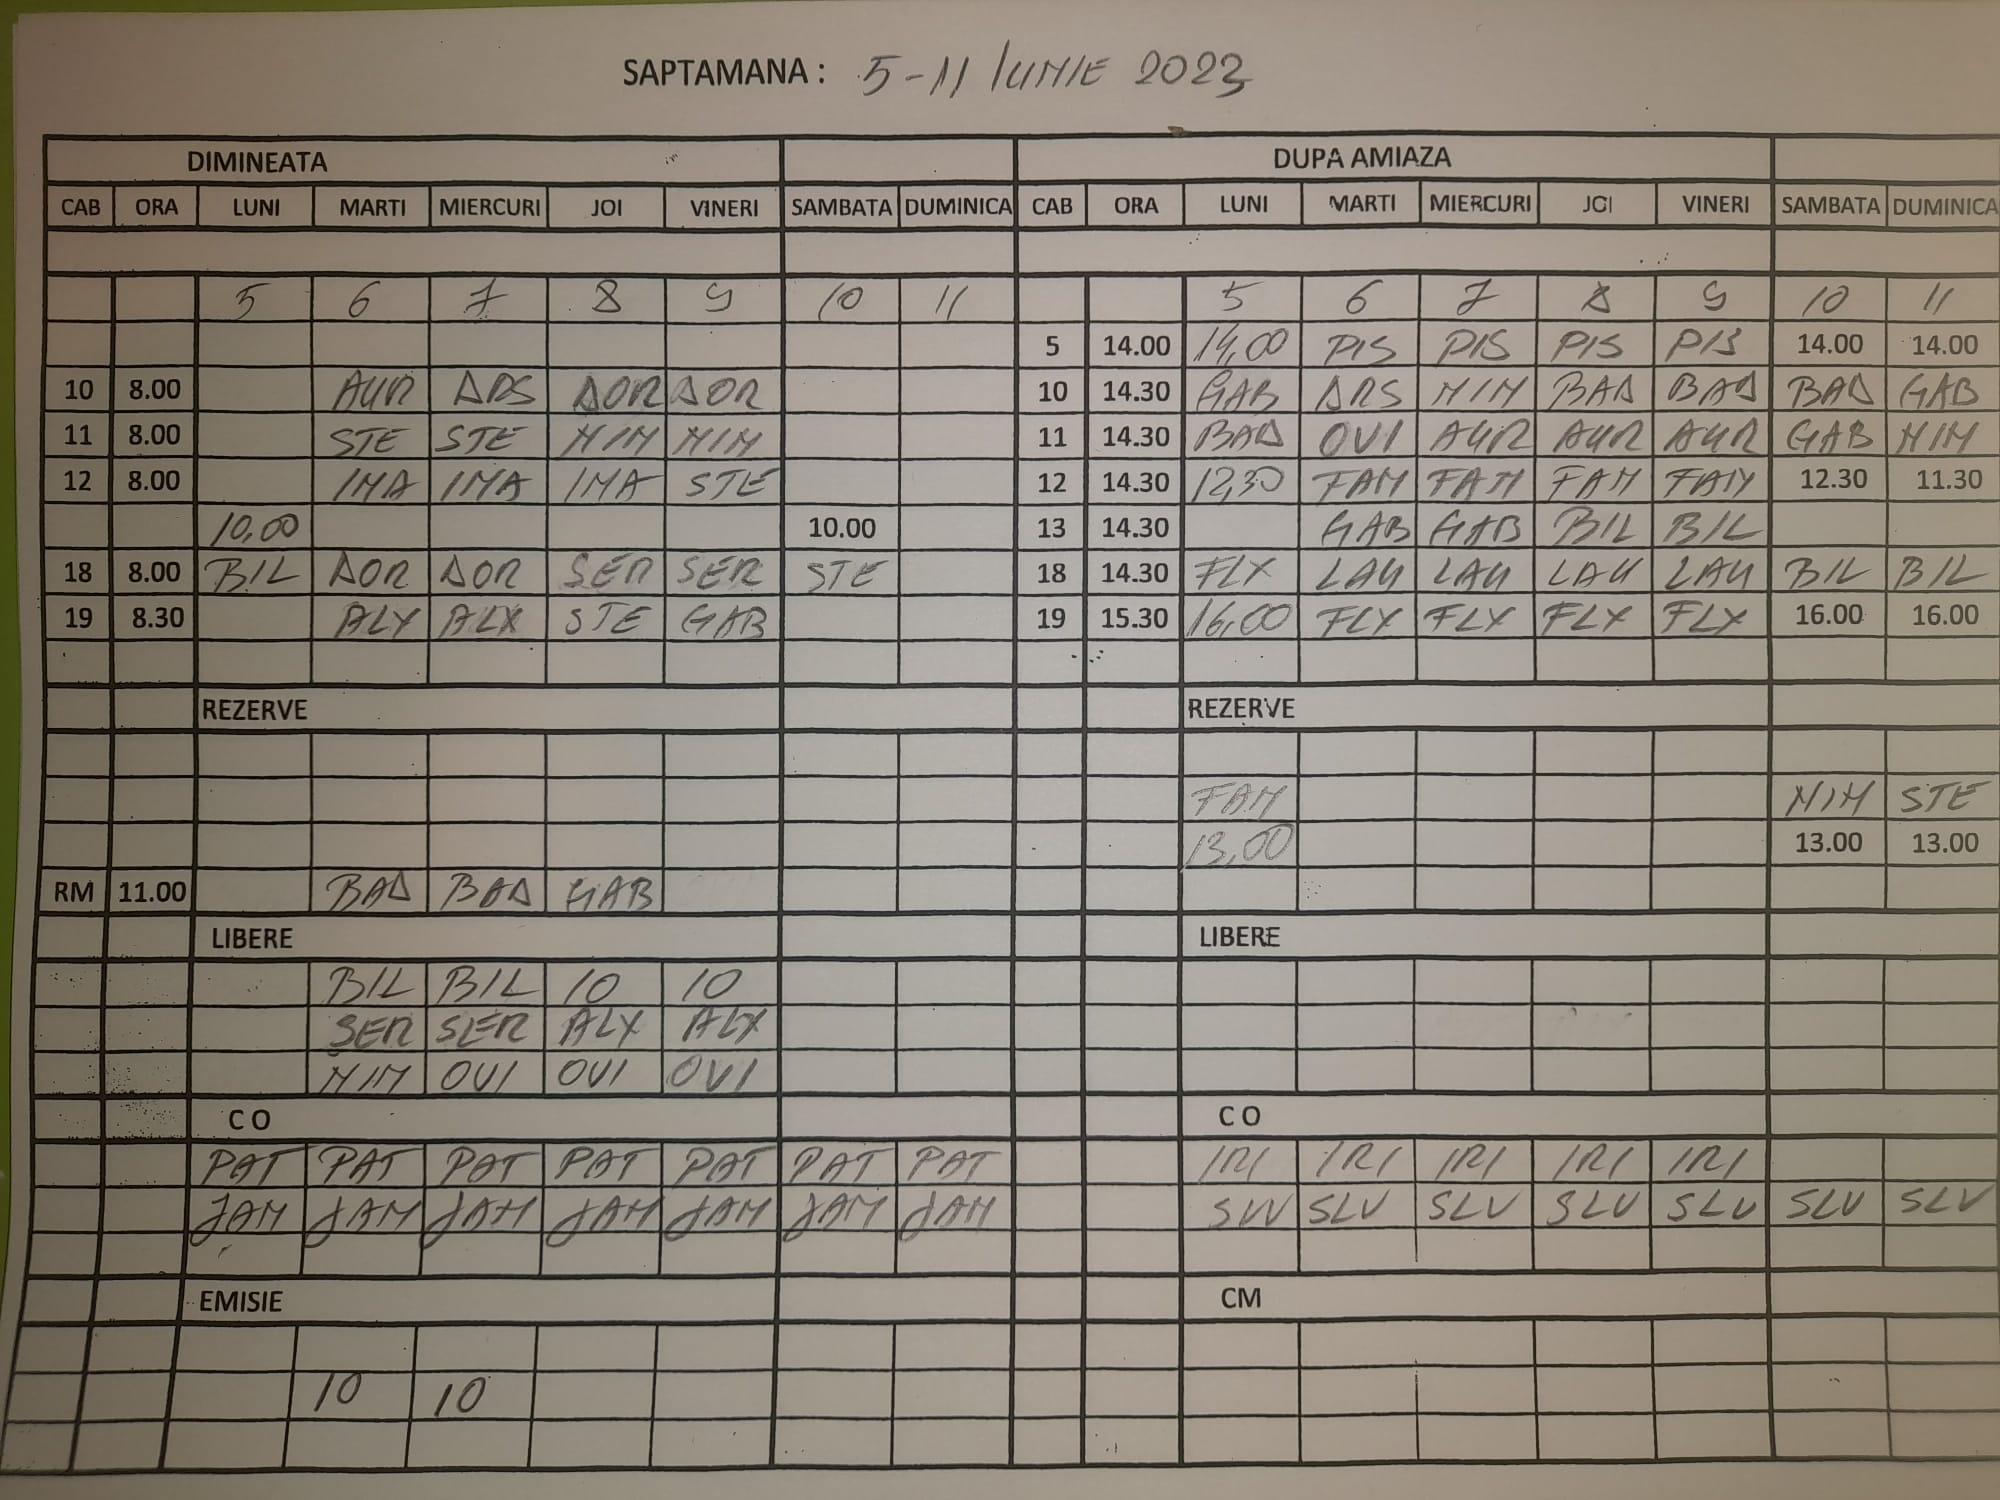 SAPTAMANA : 5-11 IUNIE 2023
DIMINEATA DUPA AMIAZA
CAB ORA LUNI MARTI MIERCURI JOI VINERI SAMBATA DUMINICA CAB ORA LUNI MARTI MIERCURI JOI VINERI SAMBATA DUMINICA
5 6 7 8 9 10 11 5 6 7 8 9 10 11
5 14.00 14,00 PIS PIS PIS PIS 14.00 14.00
10 8.00 AUR DRS DOR DOR 10 14.30 GAB DRS MIM BAD BAD BAD GAB
11 8.00 STE STE MIM MIM 11 14.30 BAD OVI AUR AUR AUR GAB MIM
12 8.00 IMA IMA IMA STE 12 14.30 12,30 FAM FAM FAM FAM 12.30 11.30
10,00 10.00 13 14.30 GAB GAB BIL BIL
18 8.00 BIL DOR DOR SER SER STE 18 14.30 FLX LAU LAU LAU LAU BIL BIL
19 8.30 ALX ALX STE GAB 19 15.30 16,00 FLX FLX FLX FLX 16.00 16.00
REZERVE REZERVE
FAM MIM STE
13,00 13.00 13.00
RM 11.00 BAD BAD GAB
LIBERE LIBERE
BIL BIL IO IO
SER SER ALX ALX
MIM OVI OVI OVI
C O C O
PAT PAT PAT PAT PAT PAT PAT IRI IRI IRI IRI IRI
JAM JAM JAM JAM JAM JAM JAM SLV SLV SLV SLV SLV SLV SLV
EMISIE CM
IO IO